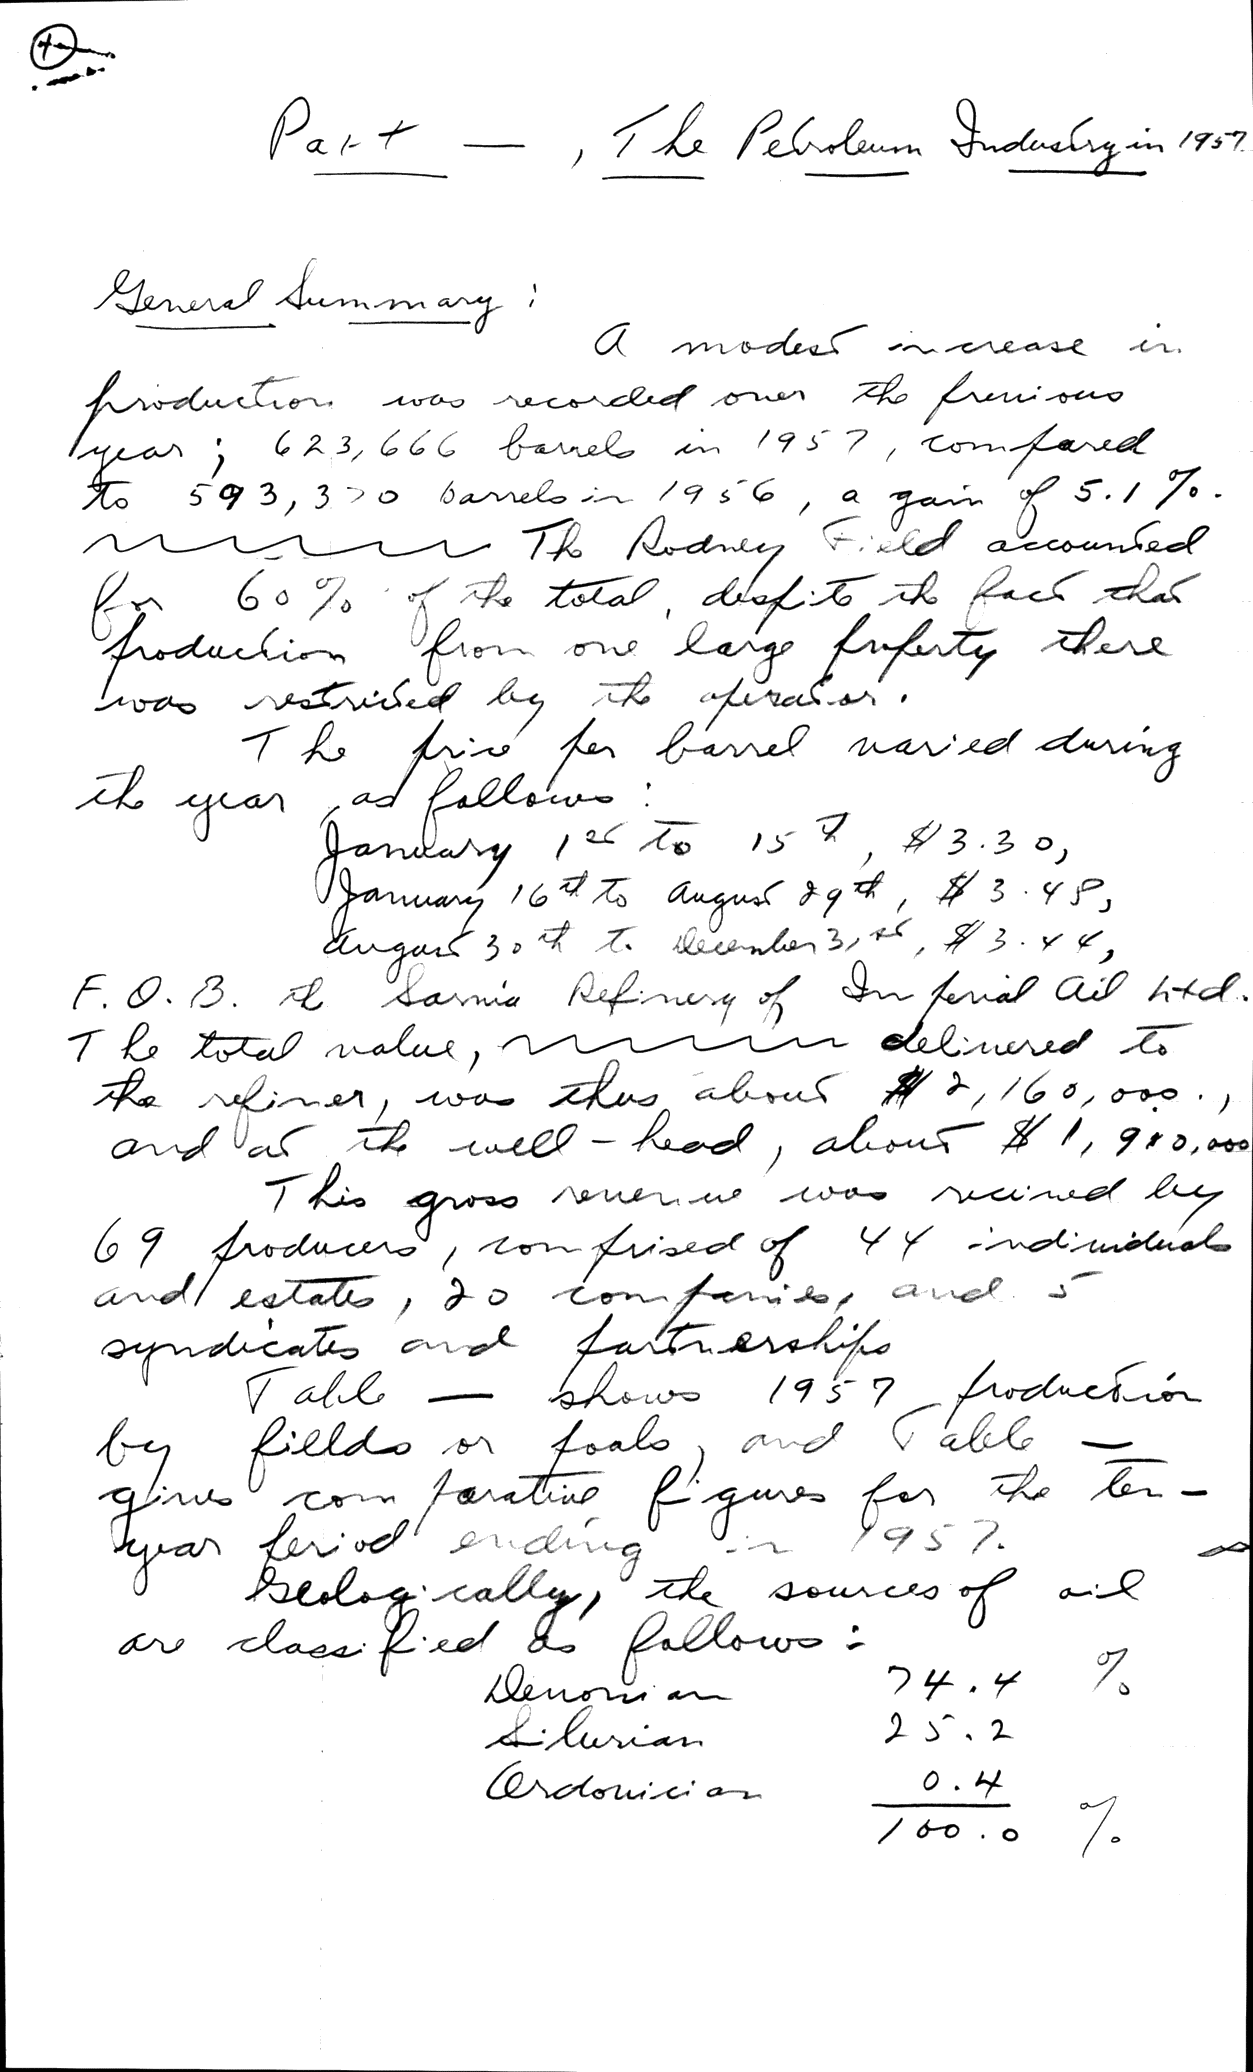 Part — , The Petroleum Industry in 1957
General Summary :
A modest increase in
production was recorded over the previous
year ; 623,666 barrels in 1957, compared
to 593,370 barrels in 1956, a gain of 5.1%.
The Rodney Field accounted
for 60% of the total, despite the fact that
production from one large property there
was restricted by the operator.
The price per barrel varied during
the year, as follows :
January 1st to 15th, $3.30,
January 16th to August 29th, $3.48,
August 30th to December 31st, $3.44,
F.O.B. the Sarnia Refinery of Imperial Oil Ltd.
The total value, delivered to
the refiner, was thus about $2,160,000.,
and at the well-head, about $1,980,000
This gross revenue was received by
69 producers, comprised of 44 individuals
and estates, 20 companies, and 5
syndicates and partnerships
Table — shows 1957 production
by fields or pools, and Table —
gives comparative figures for the ten-
year period ending in 1957.
Geologically, the sources of oil
are classified as follows :
Devonian 74.4 %
Silurian 25.2
Ordovician 0.4
100.0 %